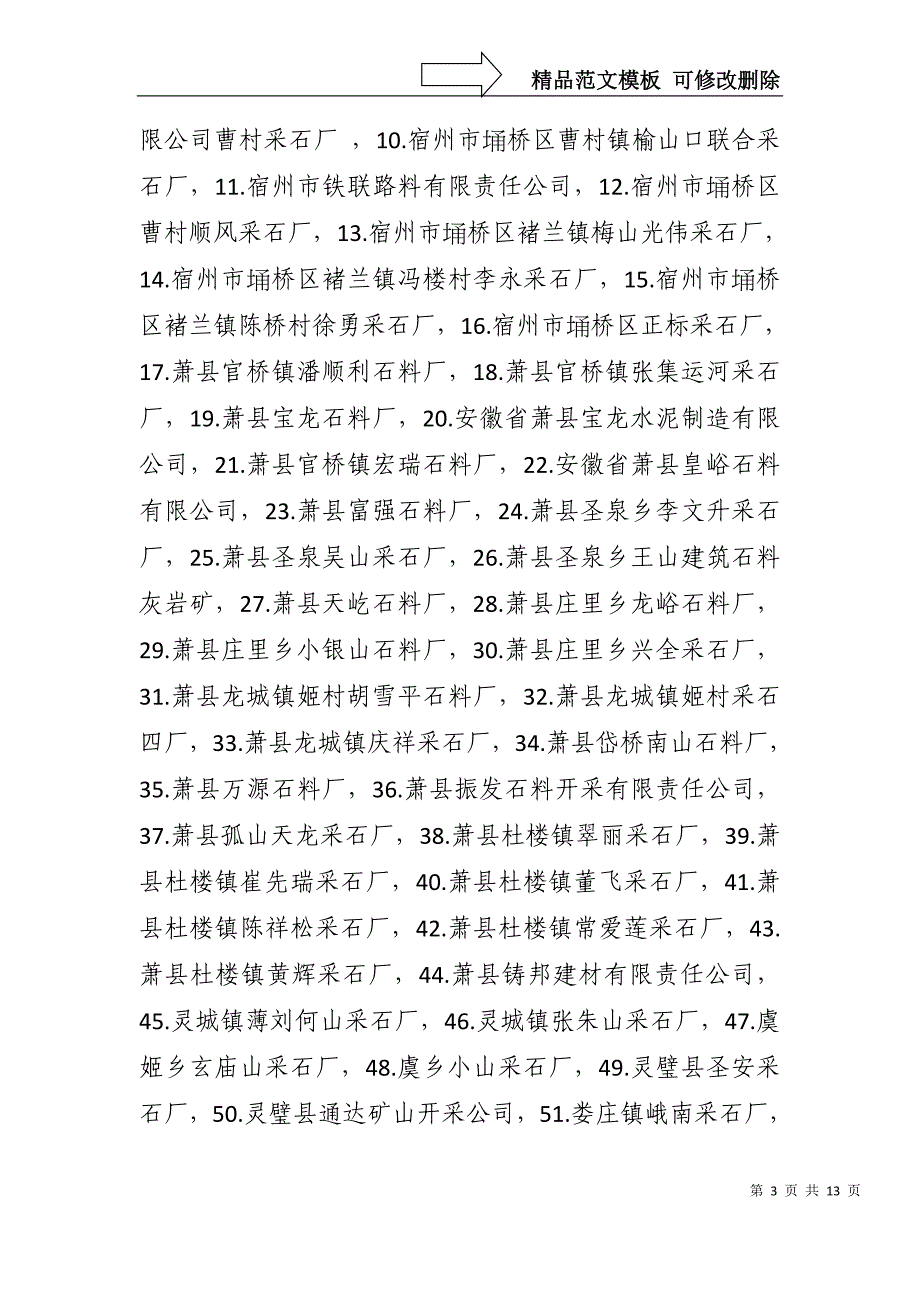 精品范文模板 可修改删除
限公司曹村采石厂 ，10.宿州市埇桥区曹村镇榆山口联合采
石厂，11.宿州市铁联路料有限责任公司，12.宿州市埇桥区
曹村顺风采石厂，13.宿州市埇桥区褚兰镇梅山光伟采石厂，
14.宿州市埇桥区褚兰镇冯楼村李永采石厂，15.宿州市埇桥
区褚兰镇陈桥村徐勇采石厂，16.宿州市埇桥区正标采石厂，
17.萧县官桥镇潘顺利石料厂，18.萧县官桥镇张集运河采石
厂，19.萧县宝龙石料厂，20.安徽省萧县宝龙水泥制造有限
公司，21.萧县官桥镇宏瑞石料厂，22.安徽省萧县皇峪石料
有限公司，23.萧县富强石料厂，24.萧县圣泉乡李文升采石
厂，25.萧县圣泉吴山采石厂，26.萧县圣泉乡王山建筑石料
灰岩矿，27.萧县天屹石料厂，28.萧县庄里乡龙峪石料厂，
29.萧县庄里乡小银山石料厂，30.萧县庄里乡兴全采石厂，
31.萧县龙城镇姬村胡雪平石料厂，32.萧县龙城镇姬村采石
四厂，33.萧县龙城镇庆祥采石厂，34.萧县岱桥南山石料厂，
35.萧县万源石料厂，36.萧县振发石料开采有限责任公司，
37.萧县孤山天龙采石厂，38.萧县杜楼镇翠丽采石厂，39.萧
县杜楼镇崔先瑞采石厂，40.萧县杜楼镇董飞采石厂，41.萧
县杜楼镇陈祥松采石厂，42.萧县杜楼镇常爱莲采石厂，43.
萧县杜楼镇黄辉采石厂，44.萧县铸邦建材有限责任公司，
45.灵城镇薄刘何山采石厂，46.灵城镇张朱山采石厂，47.虞
姬乡玄庙山采石厂，48.虞乡小山采石厂，49.灵璧县圣安采
石厂，50.灵璧县通达矿山开采公司，51.娄庄镇峨南采石厂，
第 3 页 共 13 页